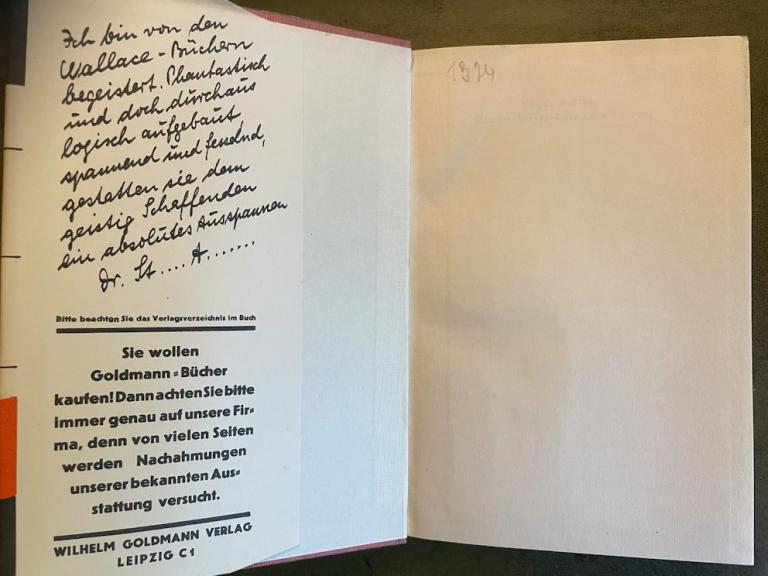 Ich bin von den
Wallace-Büchern
begeistert. Phantastisch
und doch durchaus
logisch aufgebaut,
spannend und fesselnd,
gestatten sie dem
geistig Schaffenden
ein absolutes Ausspannen
Dr. St.... A.......
Bitte beachten Sie das Verlagsverzeichnis im Buch
Sie wollen
Goldmann=Bücher
kaufen! Dann achten Sie bitte
immer genau auf unsere Fir=
ma, denn von vielen Seiten
werden Nachahmungen
unserer bekannten Aus=
stattung versucht.
WILHELM GOLDMANN VERLAG
LEIPZIG C1
1974